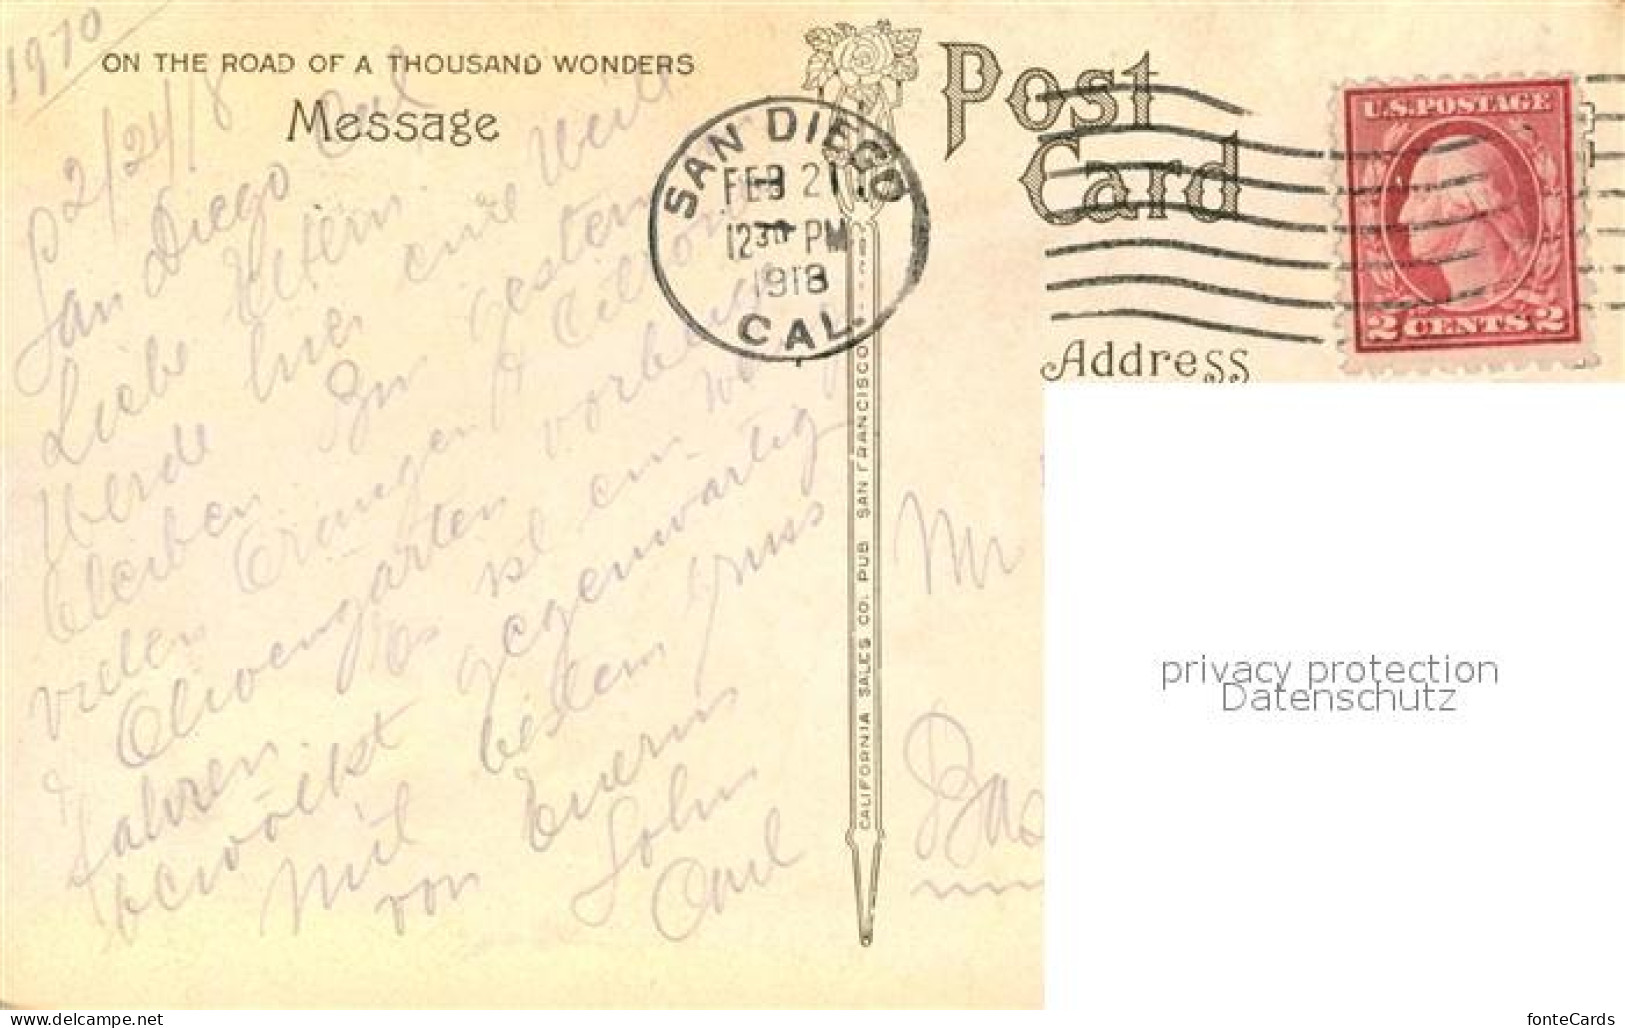 1970
ON THE ROAD OF A THOUSAND WONDERS
Message
2/24/18
San Diego Cal
Liebe Eltern
Werde hier eine Weile
bleiben gestern
vielen Orangen &
Olivengarten vorbei
fahren Es ist ein wenig
bewölkt gegenwärtig
Mit besten Gruss
von Euerm
Sohn
SAN DIEGO
FEB 2
1230 PM
1918
CAL.
CALIFORNIA SALES CO. PUB SAN FRANCISCO
Post
Card
U.S. POSTAGE
2 CENTS 2
Address
Mr
Bas
privacy protection
Datenschutz
www.delcampe.net
fonteCards